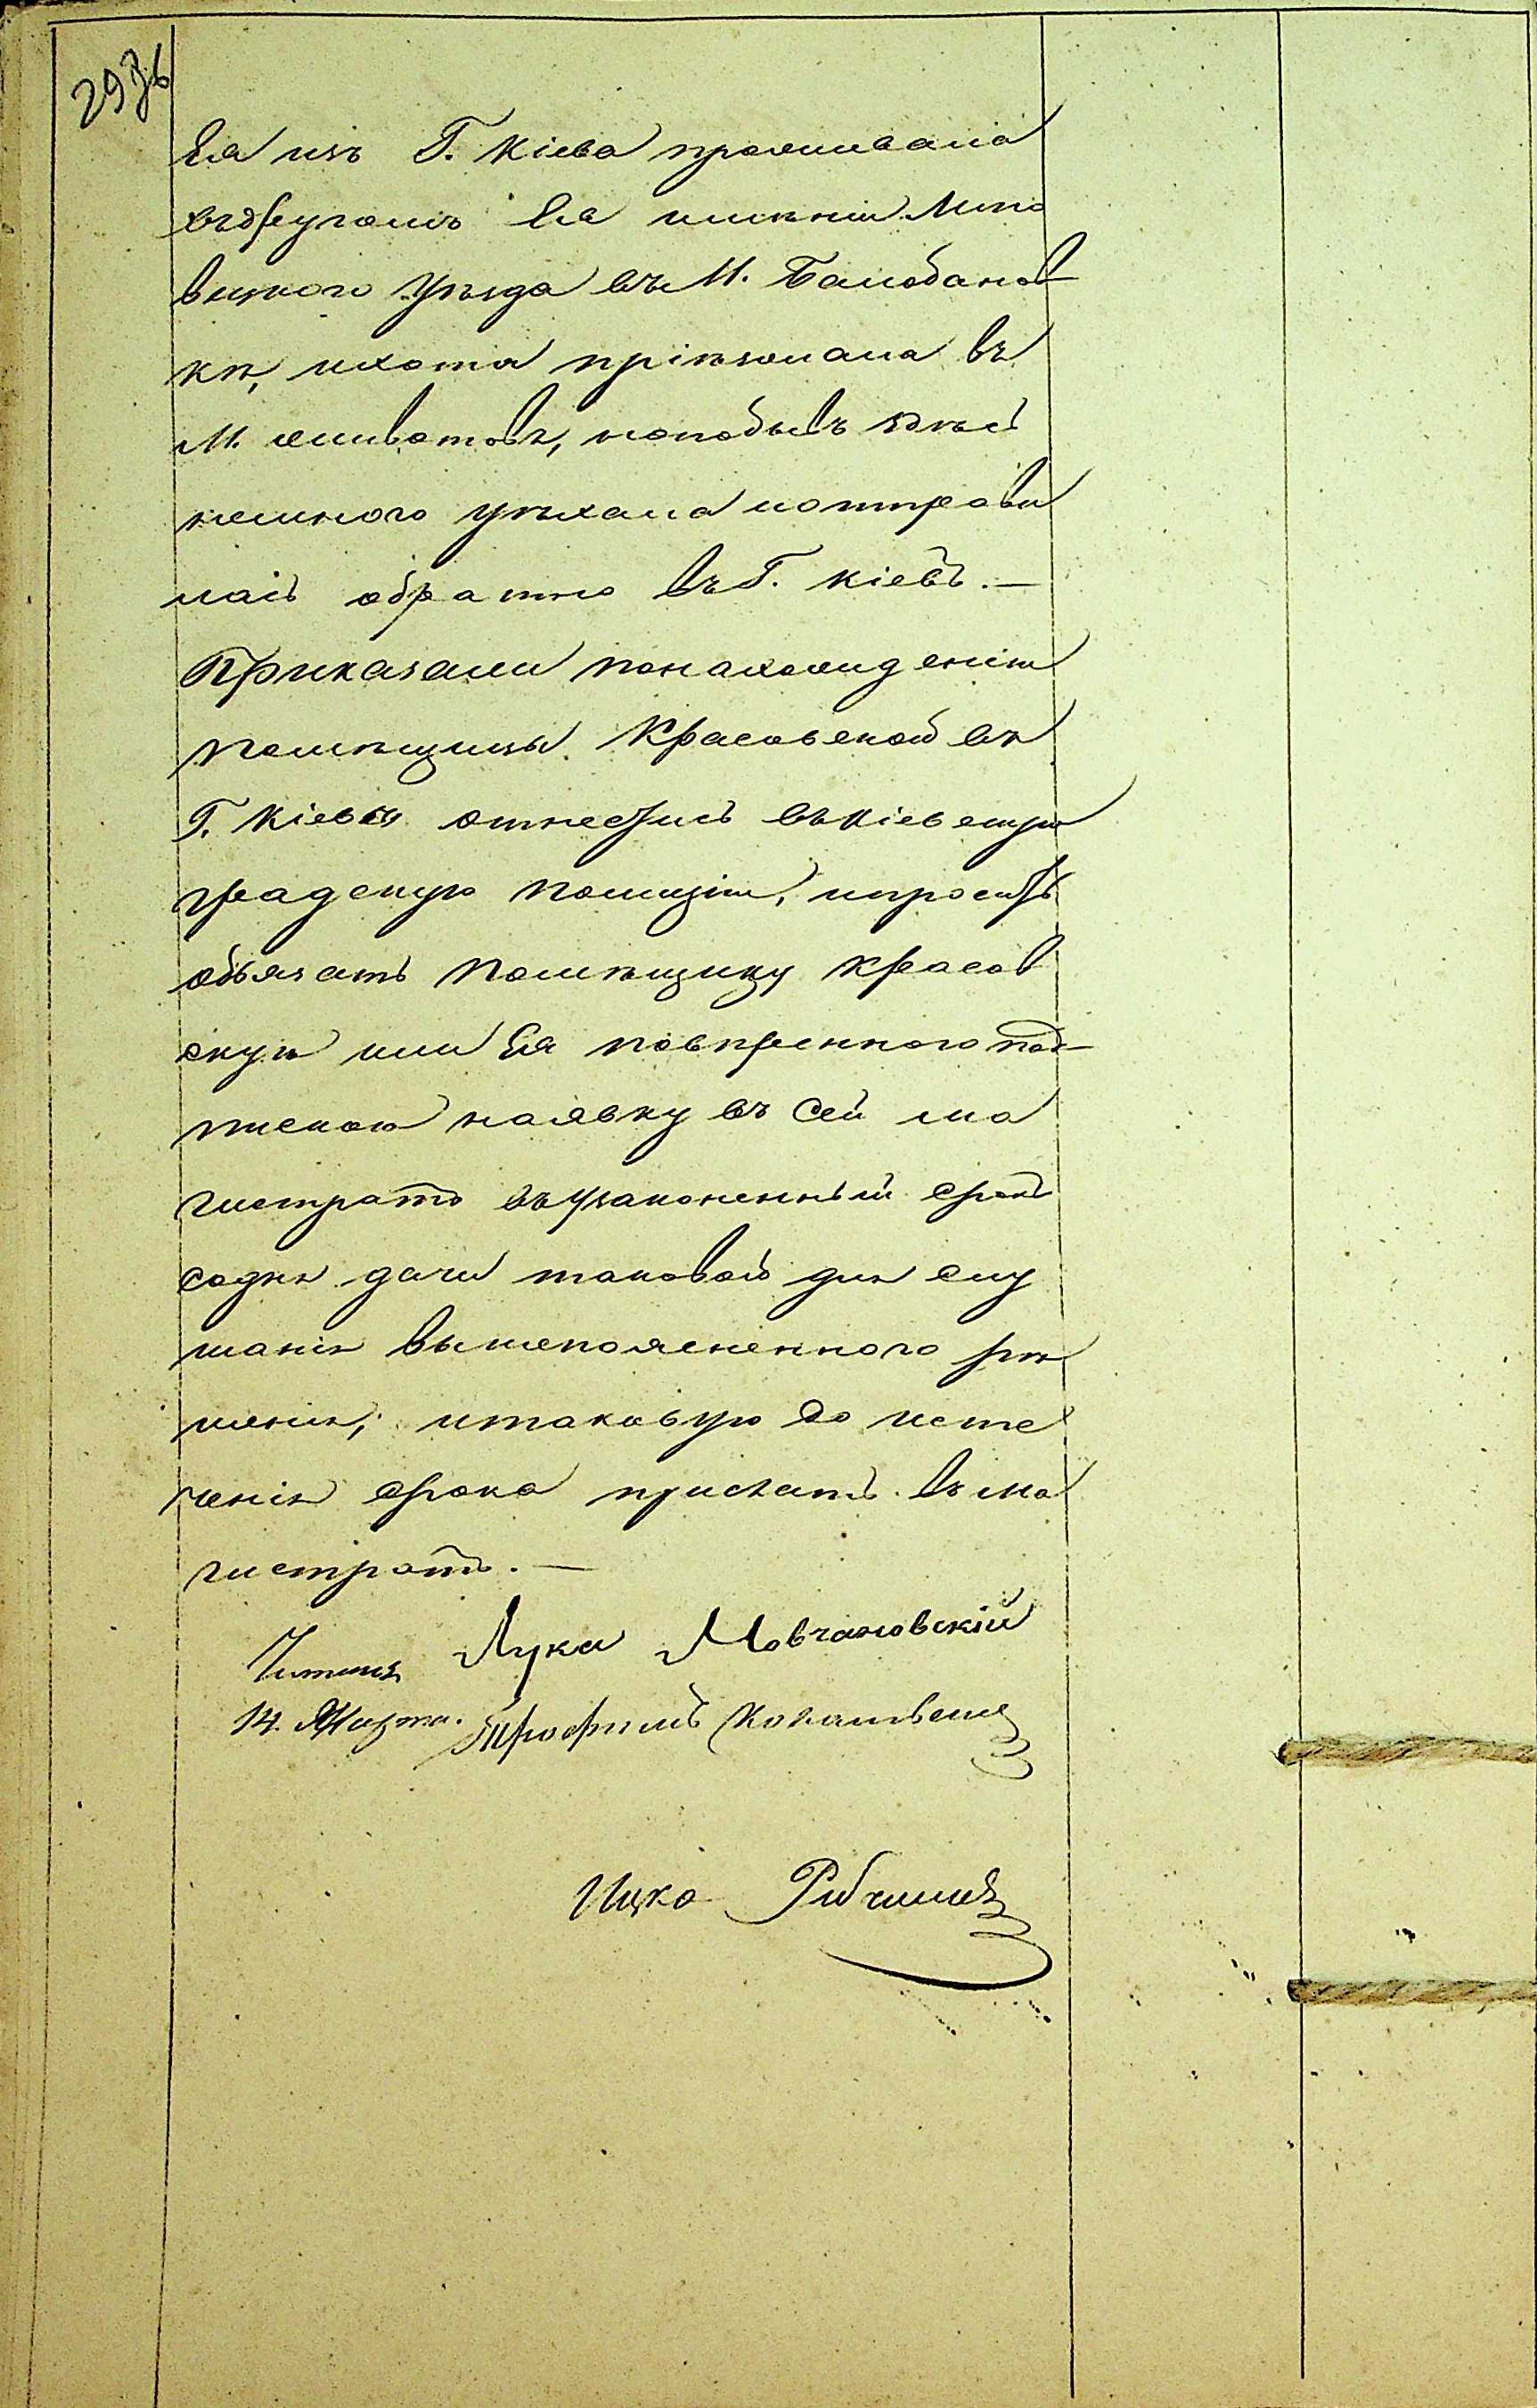 293б
Ея изъ Г. Кіева проживала
въ другомъ Ея имѣніи Липо
вецкого уѣзда въ М. Балабанов
кѣ, и хотя пріѣзжала въ
М. Животовъ, но побывъ здѣсь
немного уѣхала и отправи
лась обратно въ Г. Кіевъ. —
Приказали по нахожденію
помѣщицы Красовской въ
Г. Кіевѣ отнестись въ Кіевскую
градскую полицію, и просить
обязать помѣщицу Красов
скую или Ея повѣренного под
пискою на явку въ сей ма
гистратъ въ узаконенный срокъ
со дня дачи таковой для слу
шанія вышепоясненного рѣ
шенія; и таковую до исте
ченія срока прислать въ ма
гистратъ. —
Лука Мовчановскій
14. Марта. Трофимъ
Ицко